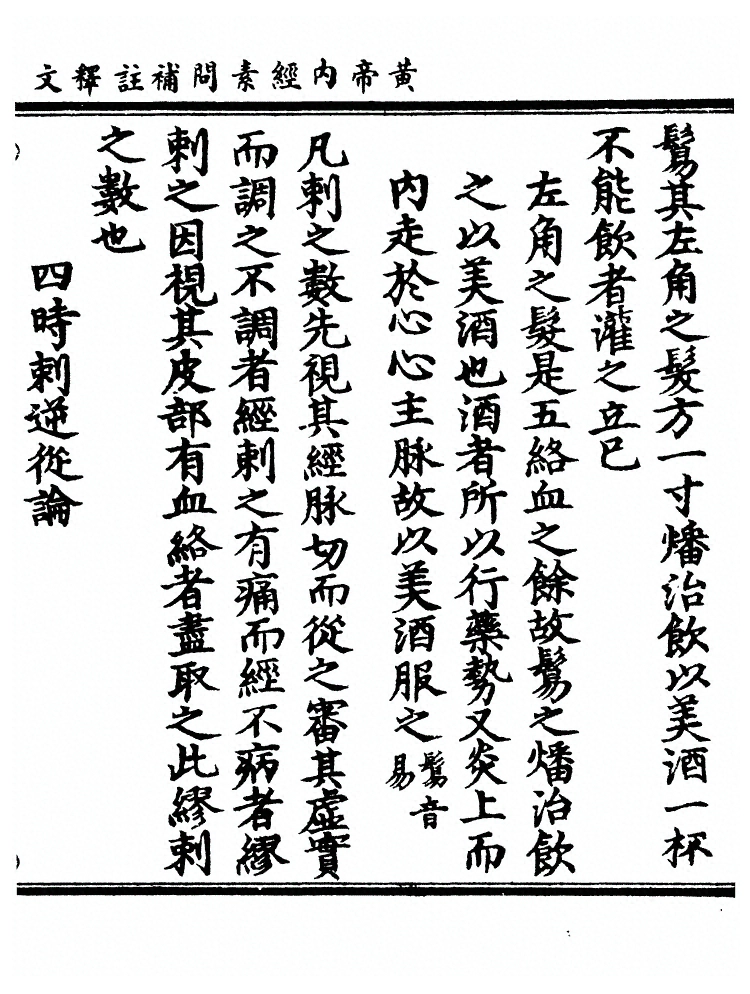 黃帝內經素問補註釋文
鬄其左角之髮方一寸燔治飲以美酒一杯
不能飲者灌之立已
左角之髮是五絡血之餘故鬄之燔治飲
之以美酒也酒者所以行藥勢又炎上而
內走於心心主脉故以美酒服之鬄音易
凡刺之數先視其經脉切而從之審其虛實
而調之不調者經刺之有痛而經不病者繆
刺之因視其皮部有血絡者盡取之此繆刺
之數也
四時刺逆從論